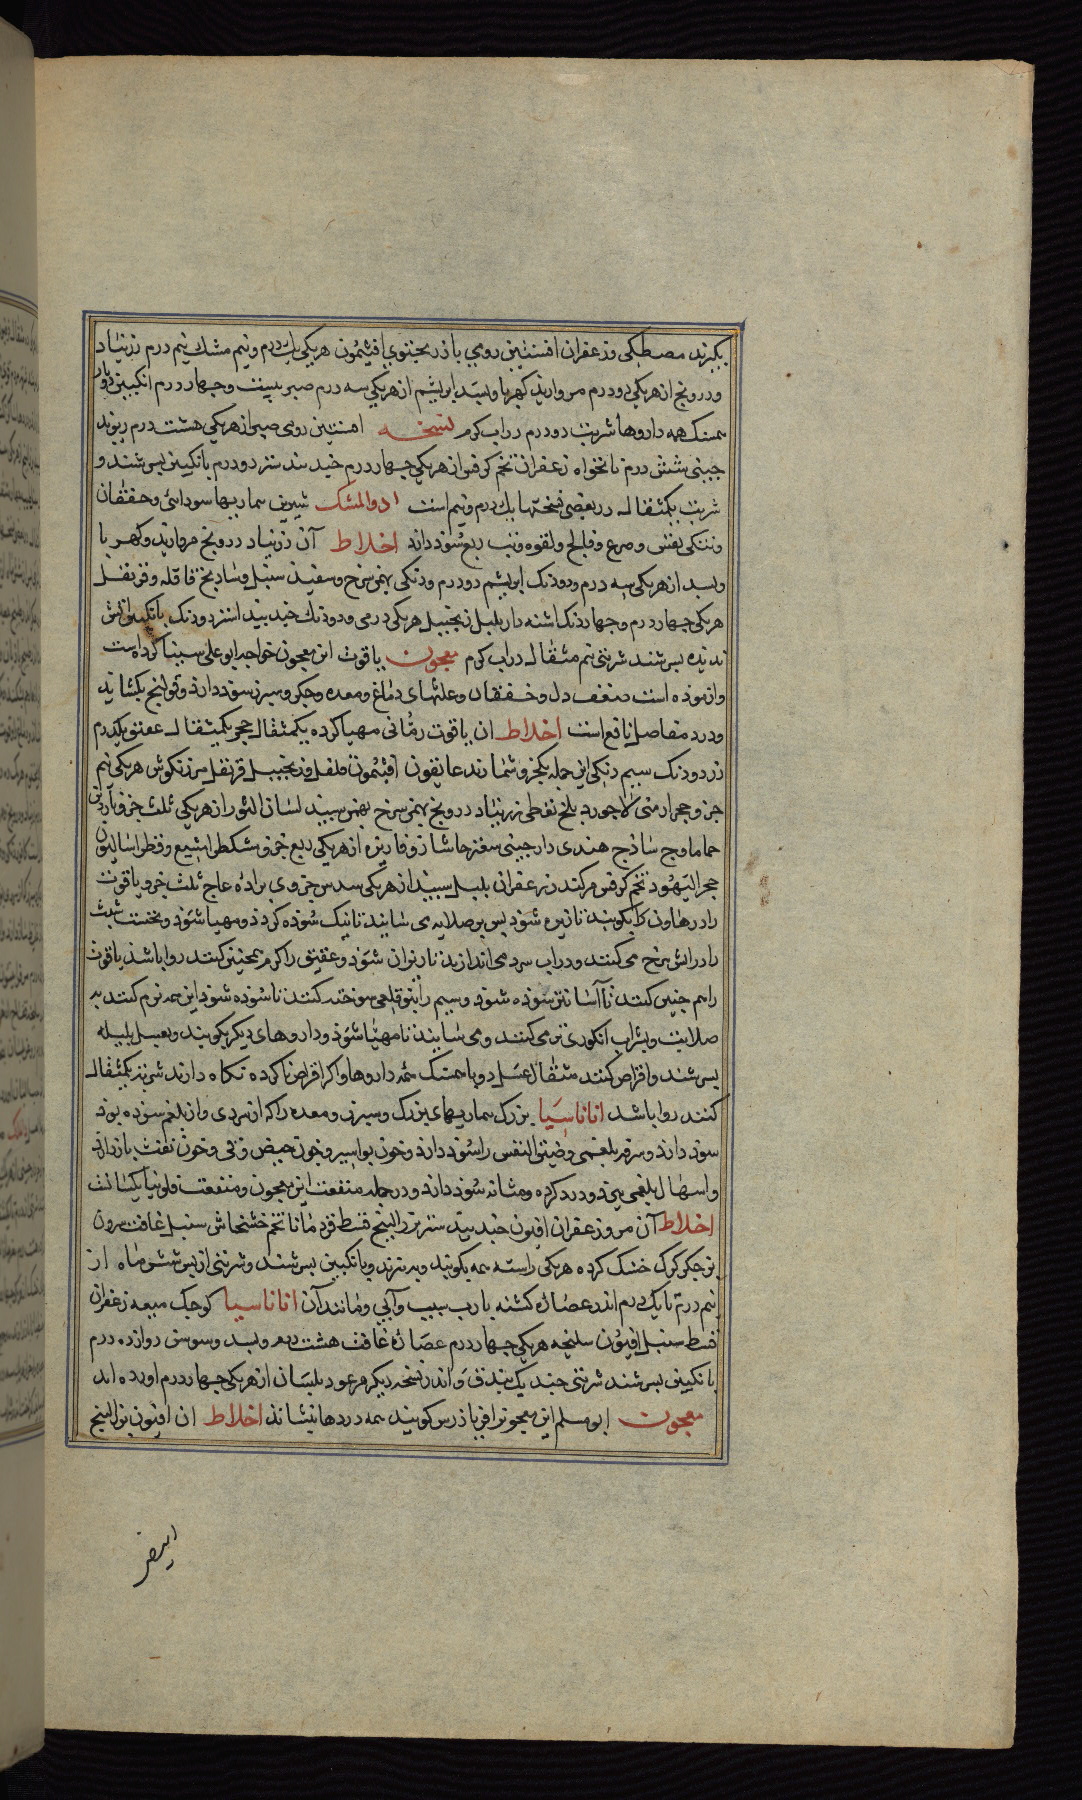 بگیرند مصطکی و زعفران افسنتین رومی باذرنجبوی افتیمون هریکی یک درم و نیم مشک نیم درم زرنباد
و درونج از هریکی دو درم مروارید کهربا و بسد ابریشم از هریکی سه درم صبر بیست و چهار درم انکبین
همسنک همه داروها شربت دو درم در اب کرم نسخه افسنتین رومی صبر از هریکی هشت درم ریوند
جینی شش درم نانخواه زعفران تخم کرفس از هریکی چهار درم جندبیدستر دو درم بانکبین بسرشند و
شربت یکمثقال در بعضی نسختها یک درم و نیم است دوالمشک شیرین بیماریها سودائی و خفقان
و تنکی نفس و صرع و فالج و لقوه و تب ربع سوذ دارذ اخلاط آن زرنباد درونج مروارید و کهربا
و بسد از هریکی سه درم و دودنک ابریشم دو درم و دنکی بهمن سرخ و سفیذ سنبل و ساذج قاقله و قرنفل
هریکی چهار درم و چهار دنک اشنه دارپلپل زنجبیل هریکی درمی و دودنک جندبیداستر دودنک بانکبین اتش
ندیده بسرشند شربتی نیم مثقال در اب کرم معجون یاقوت این معجون خواجه ابو علی سینا کرده است
و ازموده است ضعف دل و خفقان و علتهای دماغ و معده و جکر و سپرز سوذ دارذ و قولنج بکشاید
و درد مفاصل نافع است اخلاط ان یاقوت رمانی مهیا کرده یکمثقال حجر یکمثقال عقیق یکدرم
زر دودنک سیم دنکی این جمله یکجزو شمارند غاریقون افتیمون فلفل و زنجبیل قرنفل مرزنکوش هریکی نیم
جزو حجر ارمنی لاجورد بلخ نفطی زرنباد درونج بهمن سرخ بهمن سپید لسان الثور از هریکی ثلث جزو
حماما وج ساذج هندی دارچینی سعتر حاشا زوفا زیره از هریکی ربع جزو مشکطرامشیع و فطراسالیون
حجر الیهود تخم کرفس مر کندر زعفران پلپل سپید از هریکی سدس جزوی براده عاج ثلث جزو یاقوت
را در هاون بکوبند تا زیره شوذ بس بر صلایه می سایند تا نیک سوده کردذ و مهیا شوذ و نخست شبت
را در اتش سرخ می کنند و در اب سرد می اندازند تا ریزان شوذ و عقیق را کر همچنین کنند روا باشذ یاقوت
را هم چنین کنند تا آسان تر سوذه شوذ و سیم را بتوی قلعی سوخته کنند تا سوده شوذ این همه نرم کنند بر
صلایت و بشراب انکوری تر می کنند و می سایند تا مهیا شوذ و داروهای دیکر بکوبند و بعسل بلیله
بسرشند و اقراص کنند مثقال عسل دو با همسنک همه داروها و اکر اقراص ناکرده نکاه دارند شربتی یکمثقال
کنند روا باشد اناناسیا بزرک بیماریهای بزرک و سپرز و معده را که از سردی و از بلغم سوده بوذ
سوذ دارذ و سرفه بلغمی و ضیق النفس را سوذ دارذ و خون بواسیر و خون حیض و قی و خون نفث بازدارذ
و اسهال بلغمی ببندد و درد کرده و مثانه سوذ دارذ و در جمله منفعت این معجون و منفعت فلونیا یکسانست
اخلاط آن مر و زعفران افیون جندبیدستر بزرالبنج قسط قردمانا تخم خشخاش سنبل غافت سرون
بز جکر کرک خشک کرده هریکی راسته همه بکوبند و بپزند و بانکبین بسرشند و شربتی از بس شش ماه از
نیم درم تا یک درم اندر عصاره کشنه یا رب سیب و آبی و مانند آن اناناسیا کوجک میعه زعفران
قسط سنبل افیون سلیخه هریکی چهار درم عصاره غافت هشت درم و بسد و سوسن دوازده درم
بانکبین بسرشند شربتی جند یک بندق و اندر نسخه دیکر مر عود بلسان از هریکی چهار درم اورده اند
معجون ابو مسلم این معجون را فریاذرس کویند همه دردها بنشانذ اخلاط ان افیون بزرالبنج
ابیض